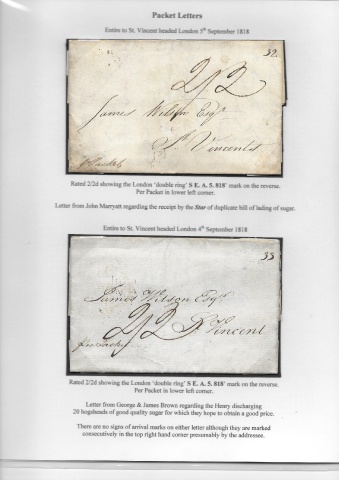 Packet Letters
Entire to St. Vincent headed London 5th September 1818
32.
2/2
James Wilson Esqr
St Vincents
p Packet
Rated 2/2d showing the London 'double ring' S E. A. 5. 818' mark on the reverse.
Per Packet in lower left corner.
Letter from John Marryatt regarding the receipt by the Star of duplicate bill of lading of sugar.
Entire to St. Vincent headed London 4th September 1818
33
James Wilson Esqr.
2/2 St Vincent
per Packet
Rated 2/2d showing the London 'double ring' S E. A. 5. 818' mark on the reverse.
Per Packet in lower left corner.
Letter from George & James Brown regarding the Henry discharging
20 hogsheads of good quality sugar for which they hope to obtain a good price.
There are no signs of arrival marks on either letter although they are marked
consecutively in the top right hand corner presumably by the addressee.